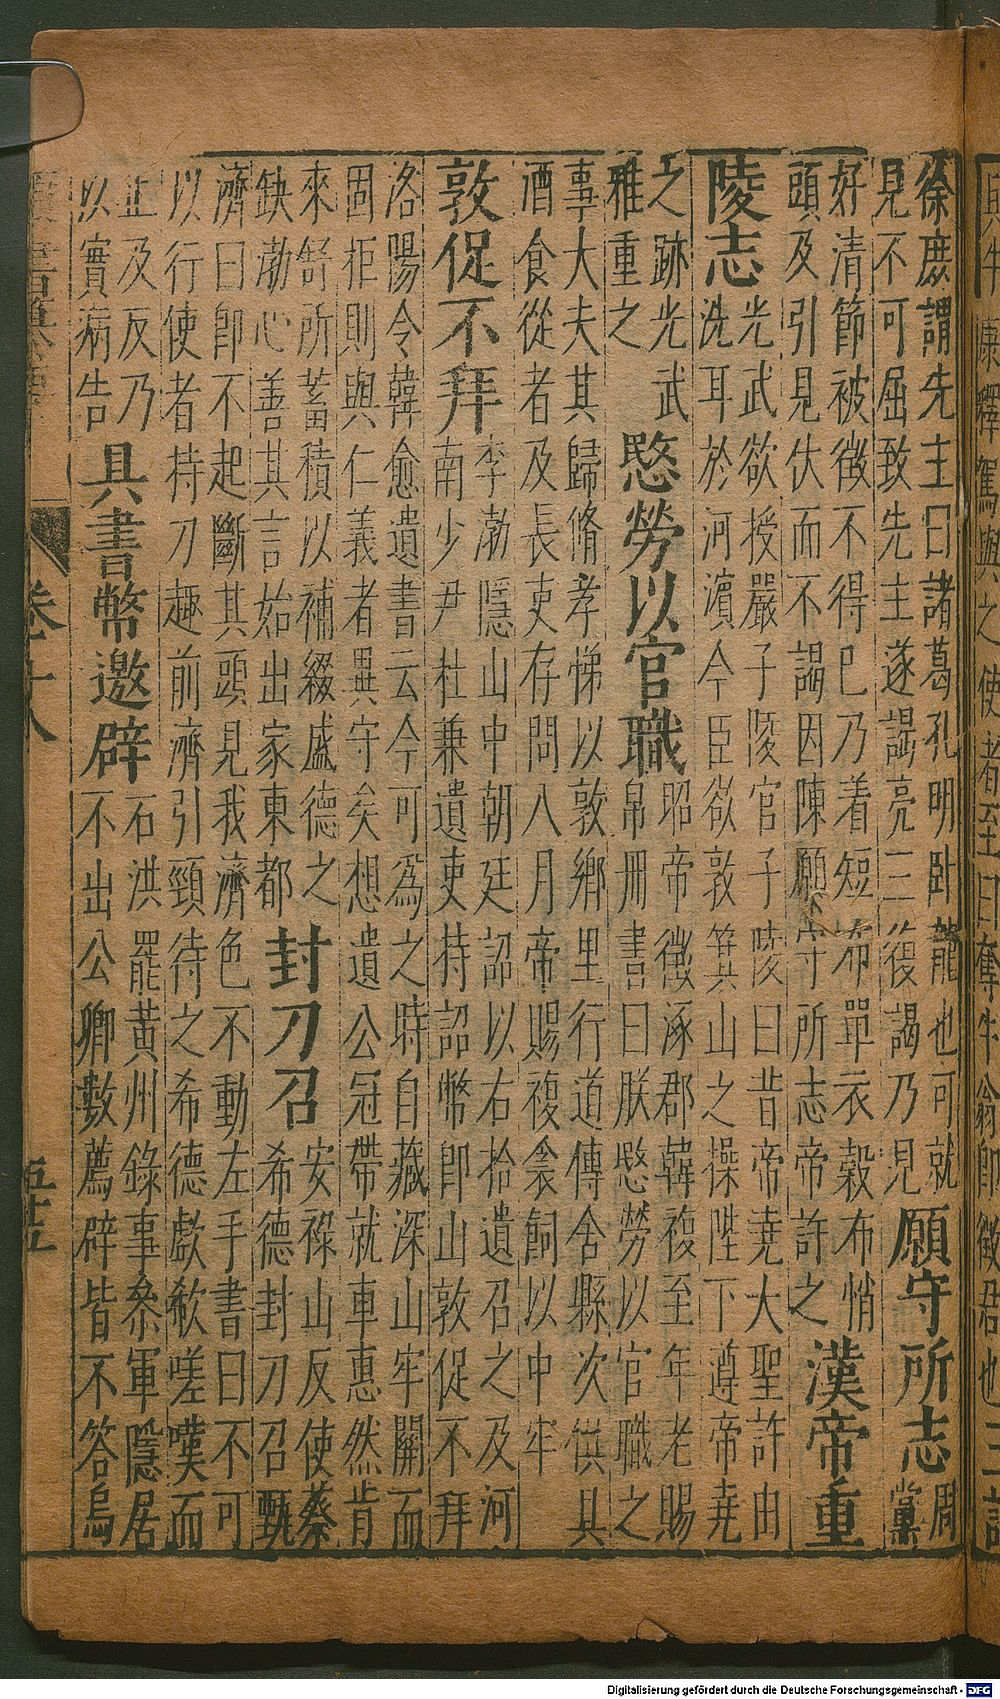 徐庻謂先主曰諸葛孔明臥龍也可就
見不可屈致先主遂謁亮三復謁乃見
願守所志
周黨
好清節被徵不得已乃着短布單衣榖布悄
頭及引見伏而不謁因陳願守所志帝許之
漢帝重
陵志
光武欲授嚴子陵官子陵曰昔帝堯大聖許由
洗耳於河濵今臣欲敦箕山之操陛下遵帝堯
之跡光武
雅重之
愍勞以官職
昭帝徵涿郡韓複至年老賜
帛冊書曰朕愍勞以官職之
事大夫其歸脩孝悌以敦鄉里行道傳舍縣次供具
酒食從者及長吏存問八月帝賜複衾飼以中牢
敦促不拜
李渤隱山中朝廷詔以右拾遺召之及河
南少尹杜兼遺吏持詔幣即山敦促不拜
洛陽令韓愈遺書云今可爲之時自藏深山牢關而
固拒則與仁義者異守矣想遺公冠帶就車惠然肯
來舒所蓄積以補綴盛德之
缺渤心善其言始出家東都
封刀召
安祿山反使蔡
希德封刀召甄
濟曰卽不起斷其頭見我濟色不動左手書曰不可
以行使者持刀趣前濟引頸待之希德歔欷嗟嘆而
止及反乃
以實病告
具書幣邀辟
石洪罷黃州錄事叅軍隱居
不出公卿數薦辟皆不答烏
卷二十八
五十五
Digitalisierung gefördert durch die Deutsche Forschungsgemeinschaft - DFG